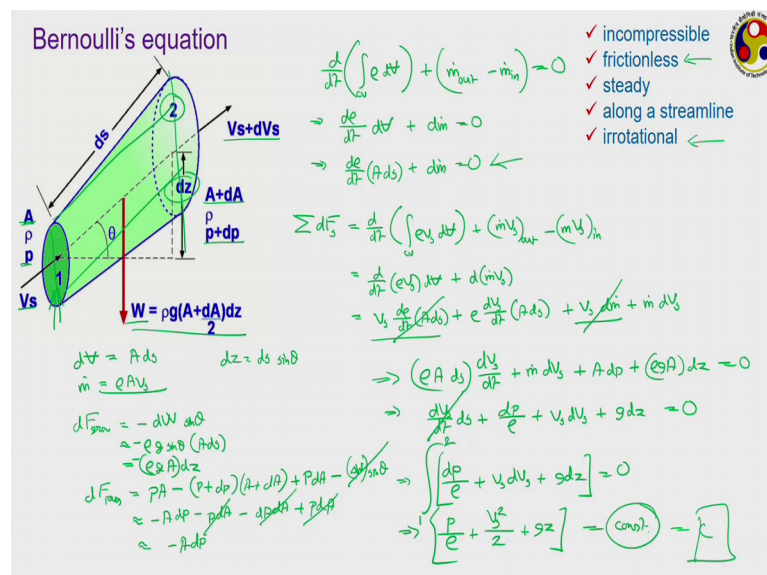 Bernoulli's equation
✓ incompressible
✓ frictionless ←
✓ steady
✓ along a streamline
✓ irrotational ←
ds
2
Vs+dVs
dz
A+dA
ρ
p+dp
A
ρ
p
θ
1
Vs
W = ρg(A+dA)dz
2
d∀ = A ds
dz = ds sinθ
ṁ = ρAVs
dFgrav = - dW sinθ
≈ -ρg sinθ (Ads)
= -(ρgA)dz
= PA - (P+dp)(A+dA) + PdA - sinθ
≈ -Adp - pdA - dpdA + pdA
≈ -Adp
d/dt (∫cv ρ d∀) + (ṁout - ṁin) = 0
⇒ dρ/dt d∀ + dṁ = 0
⇒ dρ/dt (Ads) + dṁ = 0 ←
∑ dFs = d/dt (∫cv ρVs d∀) + (ṁVs)out - (ṁVs)in
= d/dt (ρVs) d∀ + d(ṁVs)
= Vs dρ/dt (Ads) + ρ dVs/dt (Ads) + Vs dṁ + ṁ dVs
⇒ (ρA ds) dVs/dt + ṁ dVs + Adp + (ρgA) dz = 0
⇒ dVs/dt ds + dp/ρ + Vs dVs + gdz = 0
⇒ ∫₁² [dp/ρ + Vs dVs + gdz] = 0
⇒ [p/ρ + Vs²/2 + gz] = const. = C